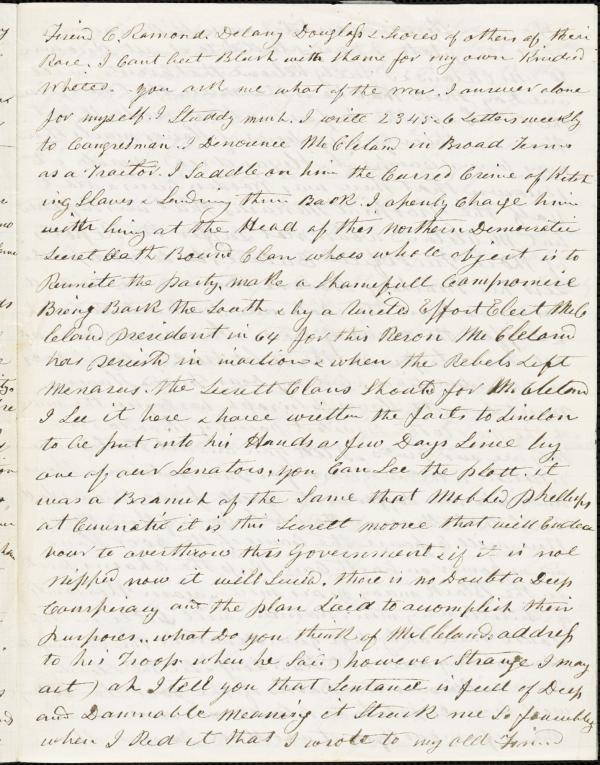 Friend C. Ramond. Delany Douglass & Scores of others of their
Race. I Cant but Blush with Shame for my own Kindred
Whites. you ask me what of the war. I answer alone
for myself. I Studdy much. I write 2 3 4 5 & 6 Letters weekly
to Congresman. I Denounce McCleland in Broad Terms
as a Traitor. I Saddle on him the Curred Crime of Ketch
ing Slaves & Sending them Back. I openly Charge him
with being at the Head of this Northern Democratic
Secret Oath Bound Clan whoes whole object is to
Reunite the Party, make a Shamefull Compromise
Bring Back the South & by a United Effort Elect McC
leland President in 64 for this Reson McCleland
has persisth in inaction & when the Rebels Left
Menasas. the Secrett Clans Shouth for McCleland
I See it here & have written the facts to Linclon
to be put into his Hands a few Days Sence by
one of our Senators, you Can See the plott. it
was a Branch of the Same that Mobbed Phellips
at Cincinatie it is this Secrett moove that will Endea
vour to overthrow this Government & if it is not
Nipped now it will Suceed. there is no Doubt a Deep
Conspiracy and the plan Laid to acomplish their
purposes., what Do you think of McCleland. address
to his Troops when he Sais) however Strange I may
act) ah I tell you that Sentance is full of Deep
and Damnable Meaning it Struck me So forcibley
when I Red it that I wrote to my old Friend